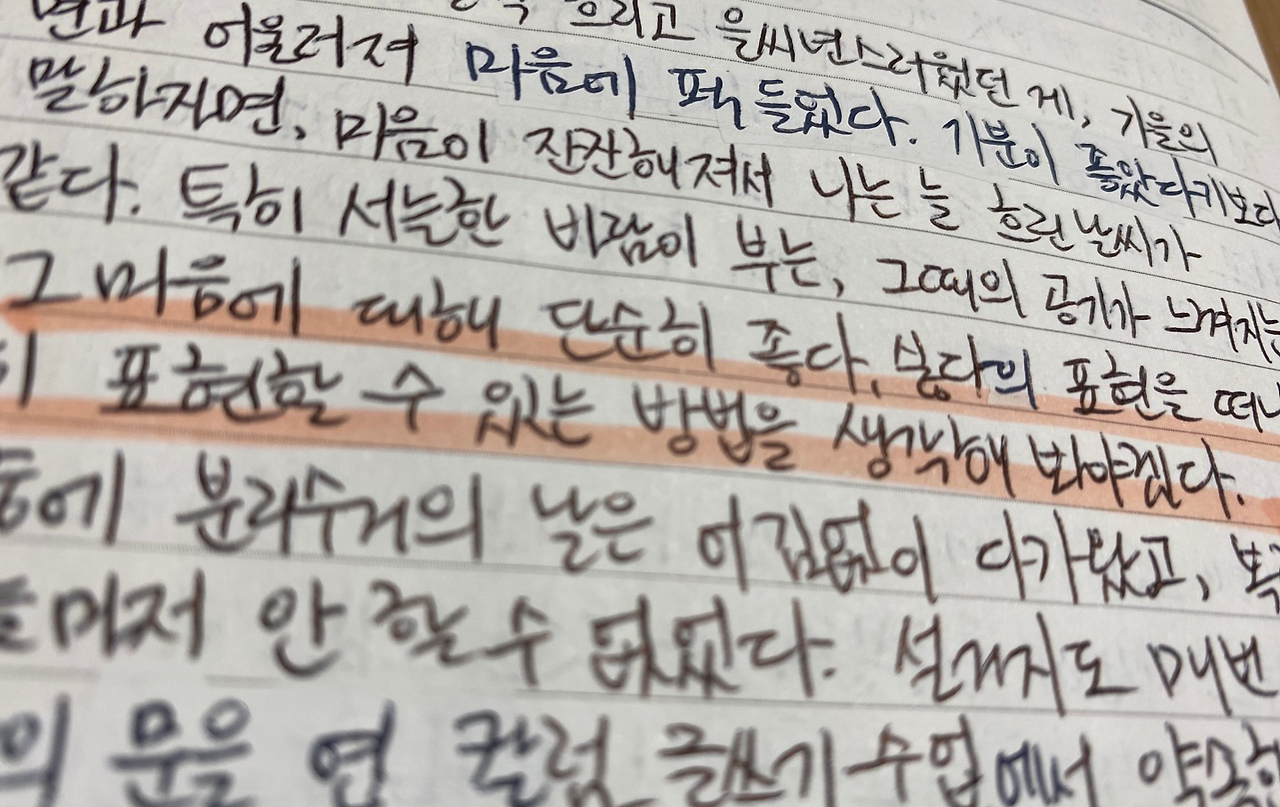 흐리고 을씨년스러웠던 게, 가을의
면과 어울려져 마음에 퍽 들었다. 기분이 좋았다기보다
말하자면, 마음이 잔잔해져서 나는 늘 흐린 날씨가
같다. 특히 서늘한 바람이 부는, 그때의 공기가 느껴지는
그 마음에 대해 단순히 좋다, 싫다의 표현을 떠나
표현할 수 있는 방법을 생각해 봐야겠다.
분리수거의 날은 어김없이 다가왔고,
마저 안 할 수 없었다. 설거지도 매번
의 문을 연 칼럼 글쓰기 수업에서